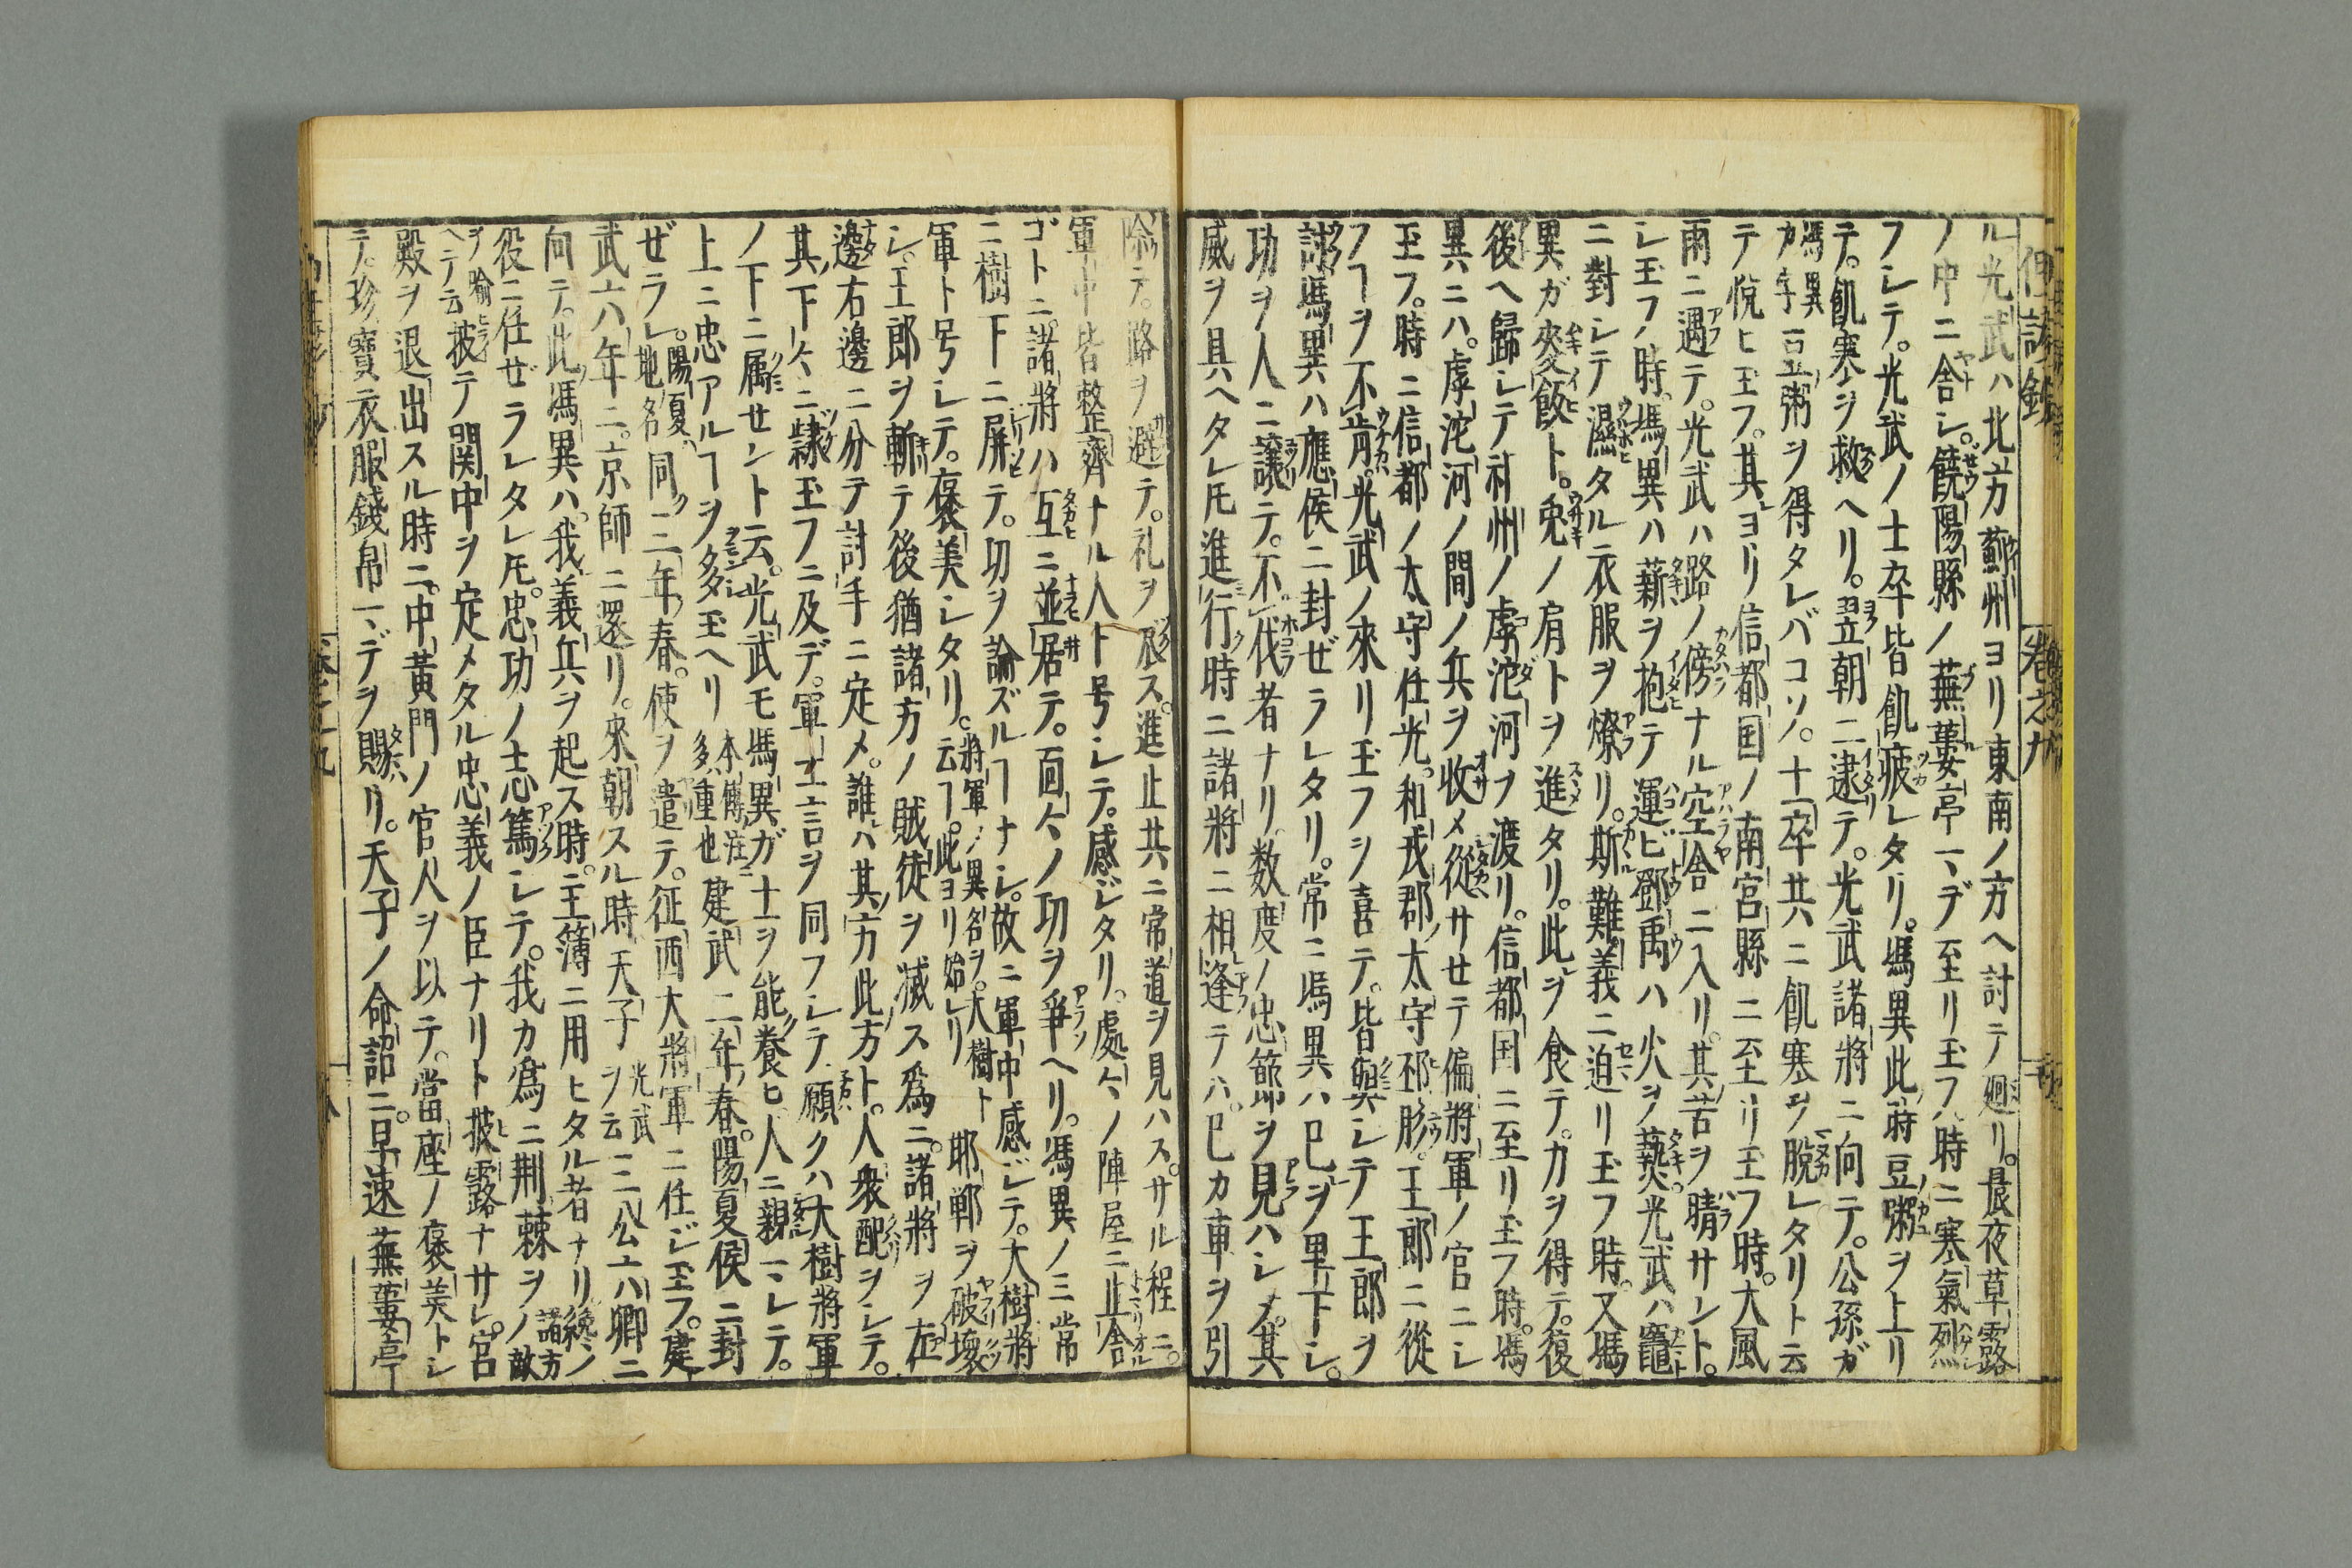 ル光武ハ北方薊州ヨリ東南ノ方ヘ討テ廻リ。晨夜草露
ノ中ニ舎シ。饒陽縣ノ蕪蔞亭マデ至リ玉フ時ニ寒氣烈
フシテ。光武ノ士卒皆飢疲レタリ。馮異此時豆粥ヲ上リ
テ。飢寒ヲ救ヘリ。翌朝ニ逮テ。光武諸將ニ向テ。公孫ガ
馮異カ字豆粥ヲ得タレバコソ。士卒共ニ飢寒ヲ脱レタリト云
テ悦ヒ玉フ。其ヨリ信都国ノ南宮縣ニ至リ玉フ時。大風
雨ニ遇テ。光武ハ路ノ傍ナル空舎ニ入リ。其苦ヲ晴サント。
シ玉フ時。馮異ハ薪ヲ抱テ運ビ鄧禹ハ火ヲ爇。光武ハ竈
ニ對シテ濕タル衣服ヲ燎リ。斯難義ニ迫リ玉フ時。又馮
異ガ麥飯ト。兎ノ肩トヲ進タリ。此ヲ食テ。力ヲ得テ。復
後ヘ歸シテ州ノ虖沱河ヲ渡リ。信都国ニ至リ玉フ時。馮
異ニハ。虖沱河ノ間ノ兵ヲ收メ從サセテ偏將軍ノ官ニシ
玉フ。時ニ信都ノ太守任光。和戎郡ノ太守邳彤。王郎ニ從
フヿヲ不肯。光武ノ來リ玉フシ喜テ。皆興シテ王郎ヲ
討。馮異ハ應侯ニ封ゼラレタリ。常ニ馮異ハ已ヲ卑下シ。
功ヲ人ニ讓テ。不伐者ナリ。数度ノ忠節ヲ見ハシメ。其
威ヲ具ヘタレ𪜈進行時ニ諸將ニ相逢テハ。已カ車ヲ引
除テ。路ヲ避テ。礼ヲ展ス。進止共ニ常道ヲ見ハス。サル程ニ。
軍中皆整齊ナル人ト号シテ。感ジタリ。處々ノ陣屋ニ止舎
ゴトニ。諸將ハ互ニ並居テ。面々ノ功ヲ爭ヘリ。馮異ノミ常
ニ樹下ニ屏テ。功ヲ論ズルヿナシ。故ニ軍中感ジテ。大樹將
軍ト号シテ。褒美シタリ。將軍ノ異名ヲ。大樹ト云ヿ。此ヨリ始レリ 邯鄲ヲ破壞
シ。王郎ヲ斬テ後猶諸方ノ賊徒ヲ滅ス爲ニ。諸將ヲ左
邊右邊ニ分テ討手ニ定メ。誰ハ其方此方ト。人衆配ヲシテ。
其下々ニ隷玉フニ及デ。軍士言ヲ同フシテ。願クハ大樹將軍
ノ下ニ属セント云。光武モ馮異ガ士ヲ能養ヒ人ニ親マレテ。
上ニ忠アルヿヲ多玉ヘリ 本傳注ニ多ハ重也 建武二年春。陽夏侯ニ封
ゼラレ。陽夏ハ地名同ク三年春。使ヲ遣テ。征西大將軍ニ任ジ玉フ。建
武六年ニ。京師ニ還リ。來朝スル時天子光武ヲ云三公六卿ニ
向テ。此馮異ハ。我義兵ヲ起ス時。主簿ニ用ヒタル者ナリ
役ニ任ゼラレタレ𪜈。忠功ノ志篤シテ。我カ爲ニ荊棘ヲ諸方ノ敵
ヲ喩ヘテ云披テ関中ヲ定メタル忠義ノ臣ナリト披露ナサレ。宮
殿ヲ退出スル時ニ。中黄門ノ官人ヲ以テ。當座ノ褒美トシ
テ。珍寶衣服錢帛マデヲ賜リ。天子ノ命詔ニ。早速蕪蔞亭